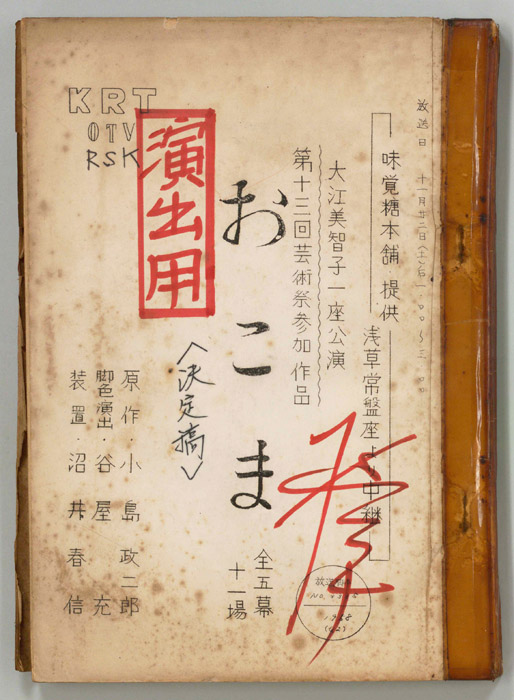 放送日 十一月廿二日(土)后一.〇〇〜三.〇〇
味覚糖本舗 提供
浅草常盤座より中継
大江美智子一座公演
第十三回芸術祭参加作品
おこま
全五幕
十一場
<決定稿>
演出用
KRT
OTV
RSK
原作・小島政二郎
脚色演出・谷屋充
装置・沼井春信
1958